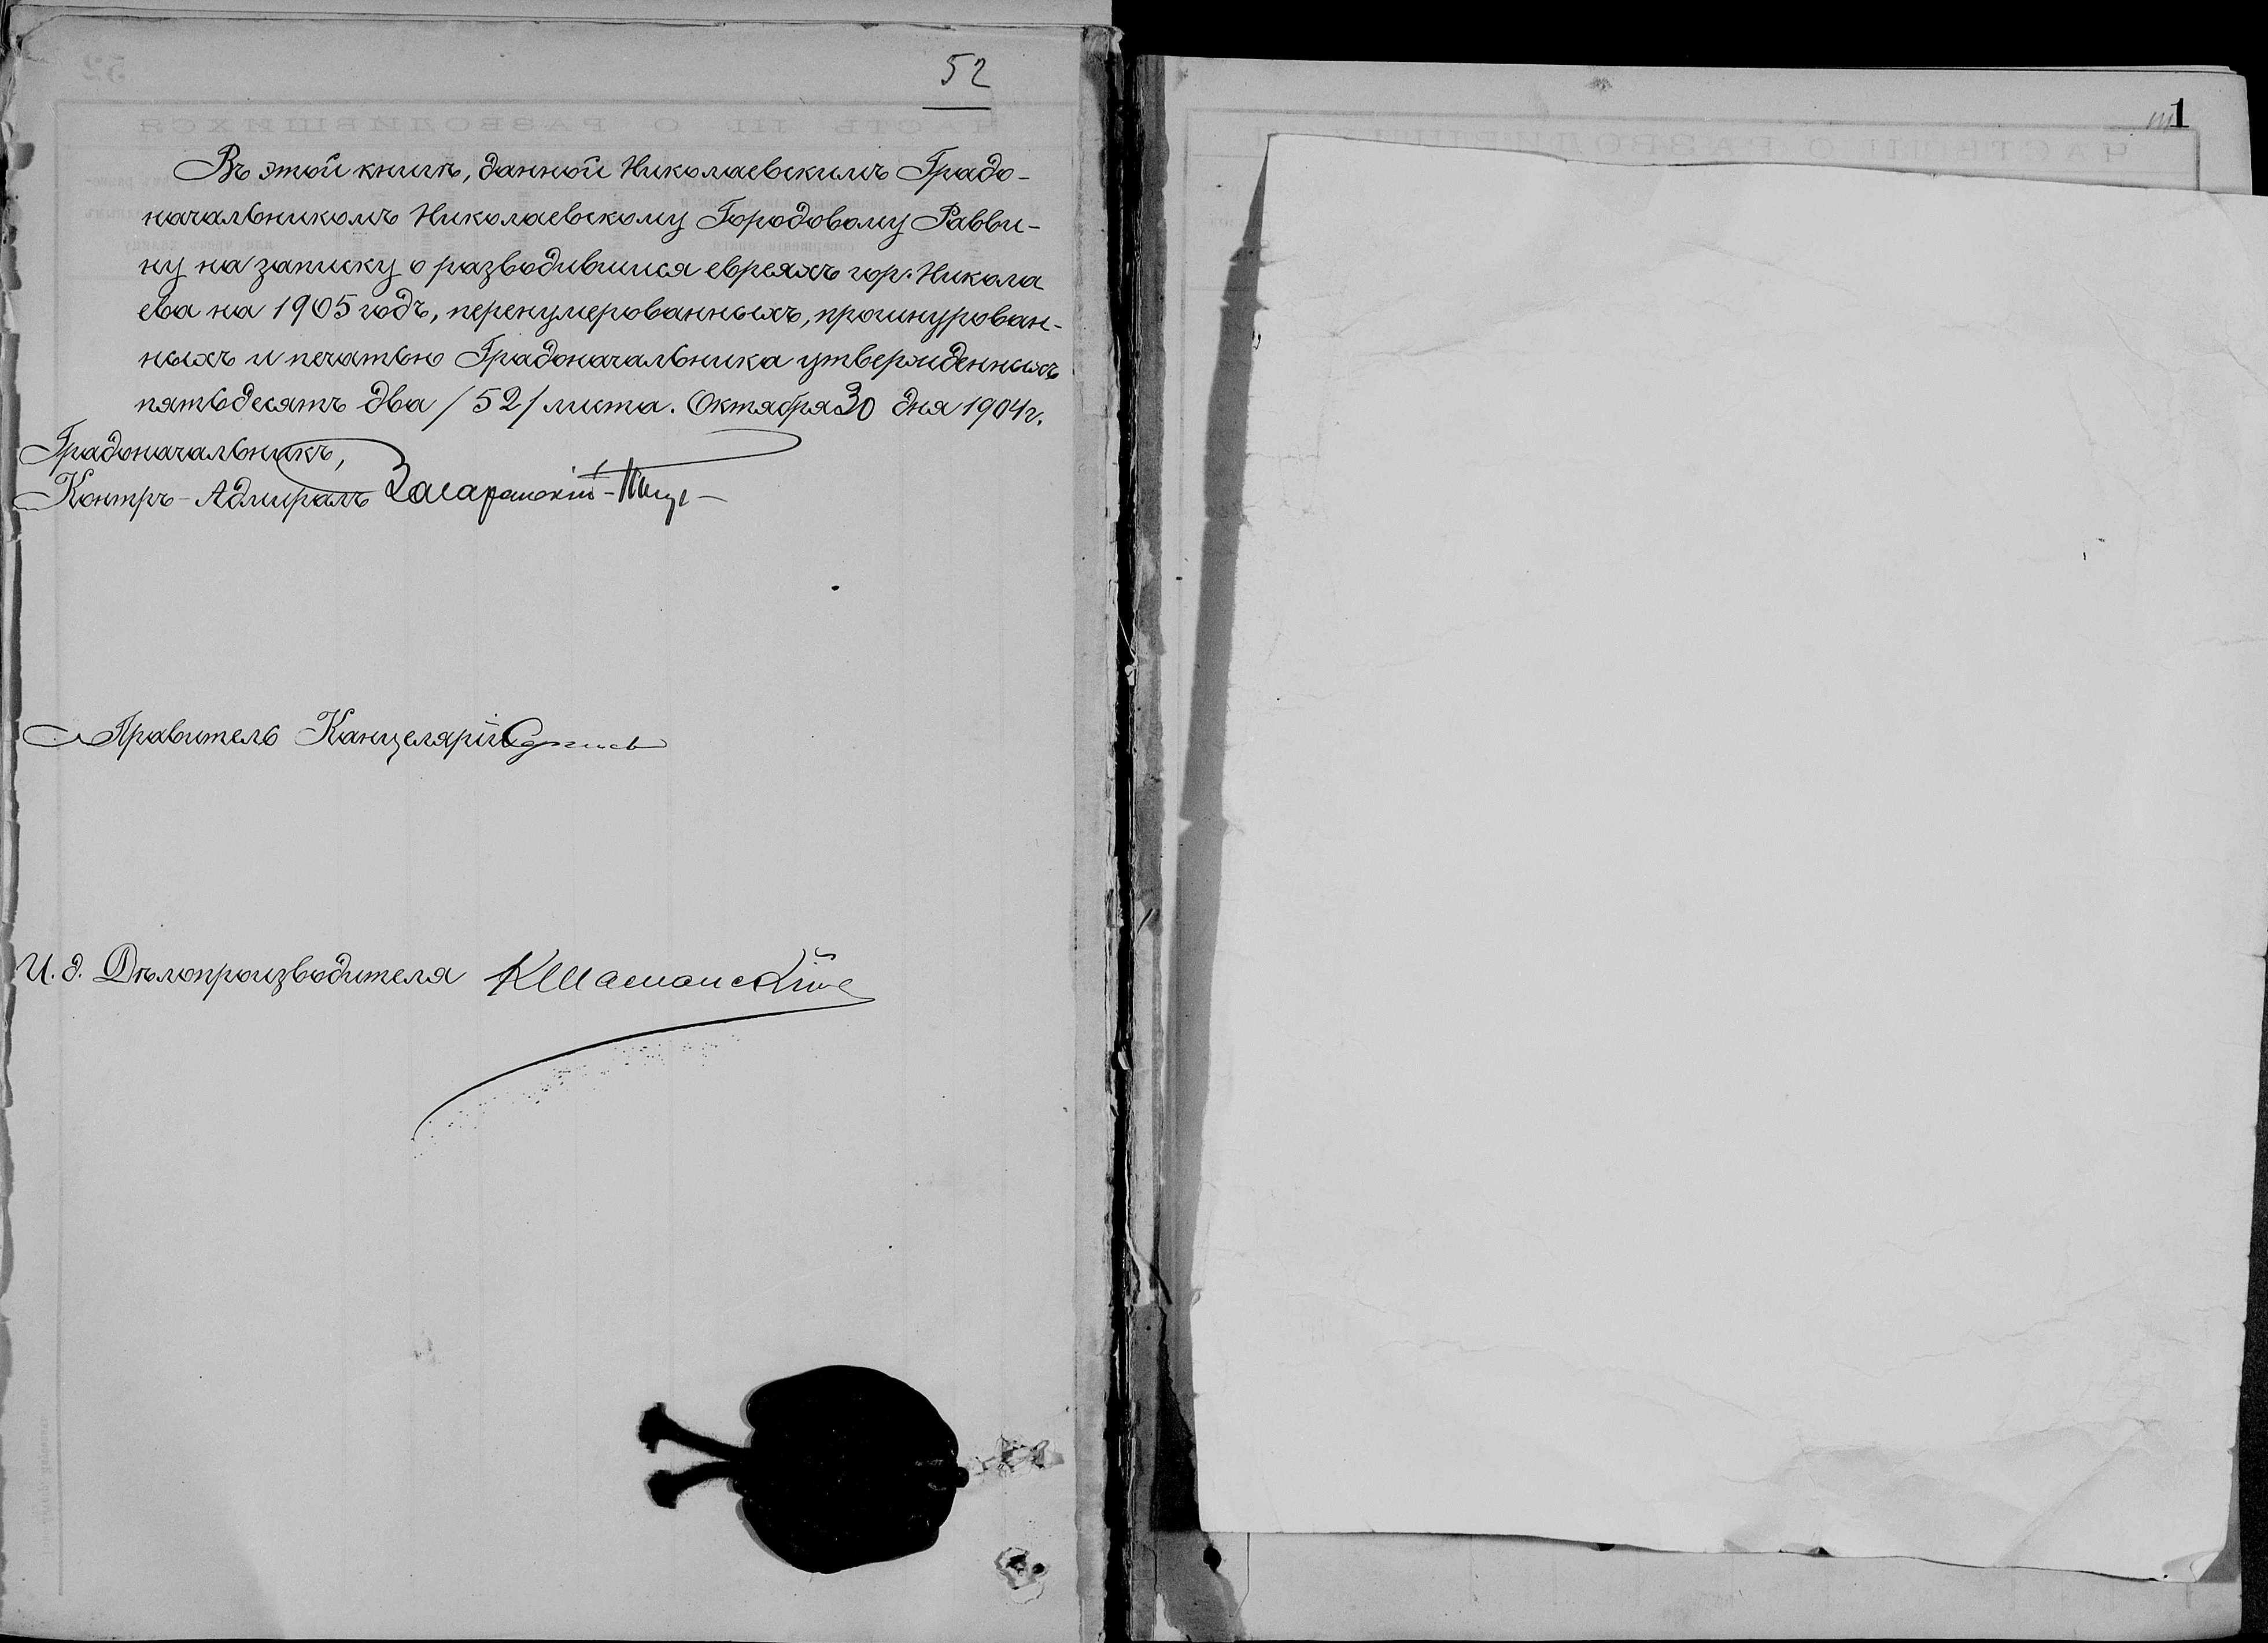 52
Въ этой книгѣ, данной Николаевскимъ Градо-
начальникомъ Николаевскому Городовому Равви-
ну на записку о разводившихся евреяхъ гор. Никола
ева на 1905 годъ, перенумерованныхъ, прошнурован-
ныхъ и печатью Градоначальника утвержденныхъ
пятьдесятъ два /52/ листа. Октября 30 дня 1904 г.
Градоначальникъ,
Контръ-Адмиралъ
Правитель Канцеляріи
И. д. Дѣлопроизводителя
1
ЧАСТЬ III О РАЗВОДИВШИХСЯ